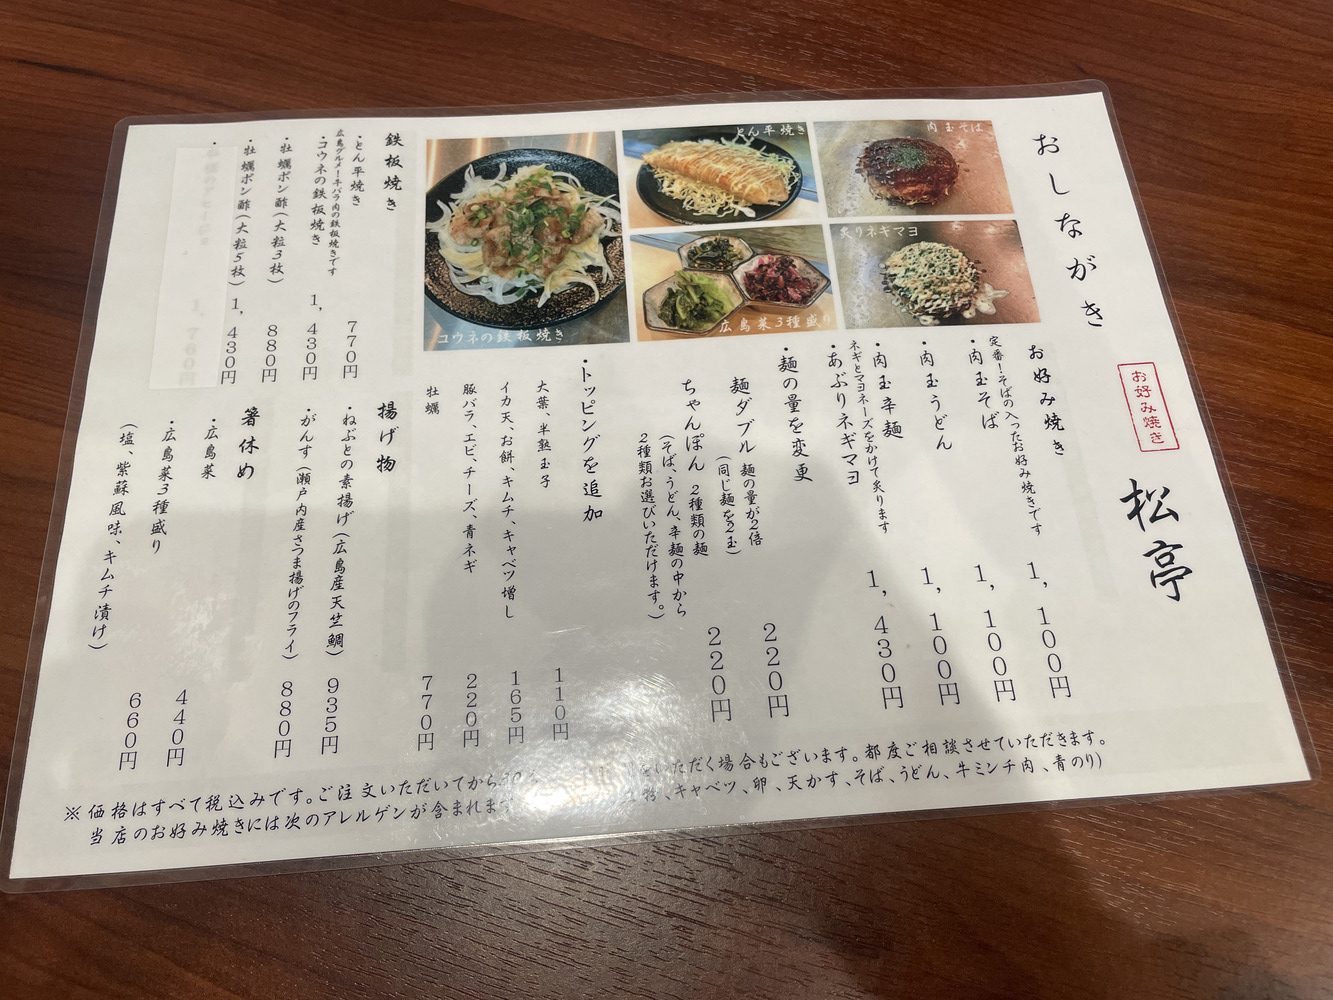 おしながき
お好み焼き
松亭
肉玉そば
炙りネギマヨ
とん平焼き
広島菜3種盛り
コウネの鉄板焼き
お好み焼き
定番!そばの入ったお好み焼きです
・肉玉そば 1,100円
・肉玉うどん 1,100円
・肉玉辛麺 1,100円
ネギとマヨネーズをかけて炙ります
・あぶりネギマヨ 1,430円
・麺の量を変更
麺ダブル 麺の量が2倍 220円
(同じ麺を2玉)
ちゃんぽん 2種類の麺 220円
(そば、うどん、辛麺の中から
2種類お選びいただけます。)
・トッピングを追加
大葉、半熟玉子 110円
イカ天、お餅、キムチ、キャベツ増し 165円
豚バラ、エビ、チーズ、青ネギ 220円
牡蠣 770円
鉄板焼き
・とん平焼き 770円
広島グルメ!牛バラ肉の鉄板焼きです
・コウネの鉄板焼き 1,430円
・牡蠣ポン酢(大粒3枚) 880円
・牡蠣ポン酢(大粒5枚) 1,430円
1,760円
揚げ物
・ねぶとの素揚げ(広島産天竺鯛) 935円
・がんす(瀬戸内産さつま揚げのフライ) 880円
箸休め
・広島菜 440円
・広島菜3種盛り 660円
(塩、紫蘇風味、キムチ漬け)
※価格はすべて税込みです。ご注文いただいてから いただく場合もございます。都度ご相談させていただきます。
当店のお好み焼きには次のアレルゲンが含まれます 、キャベツ、卵、天かす、そば、うどん、牛ミンチ肉、青のり)